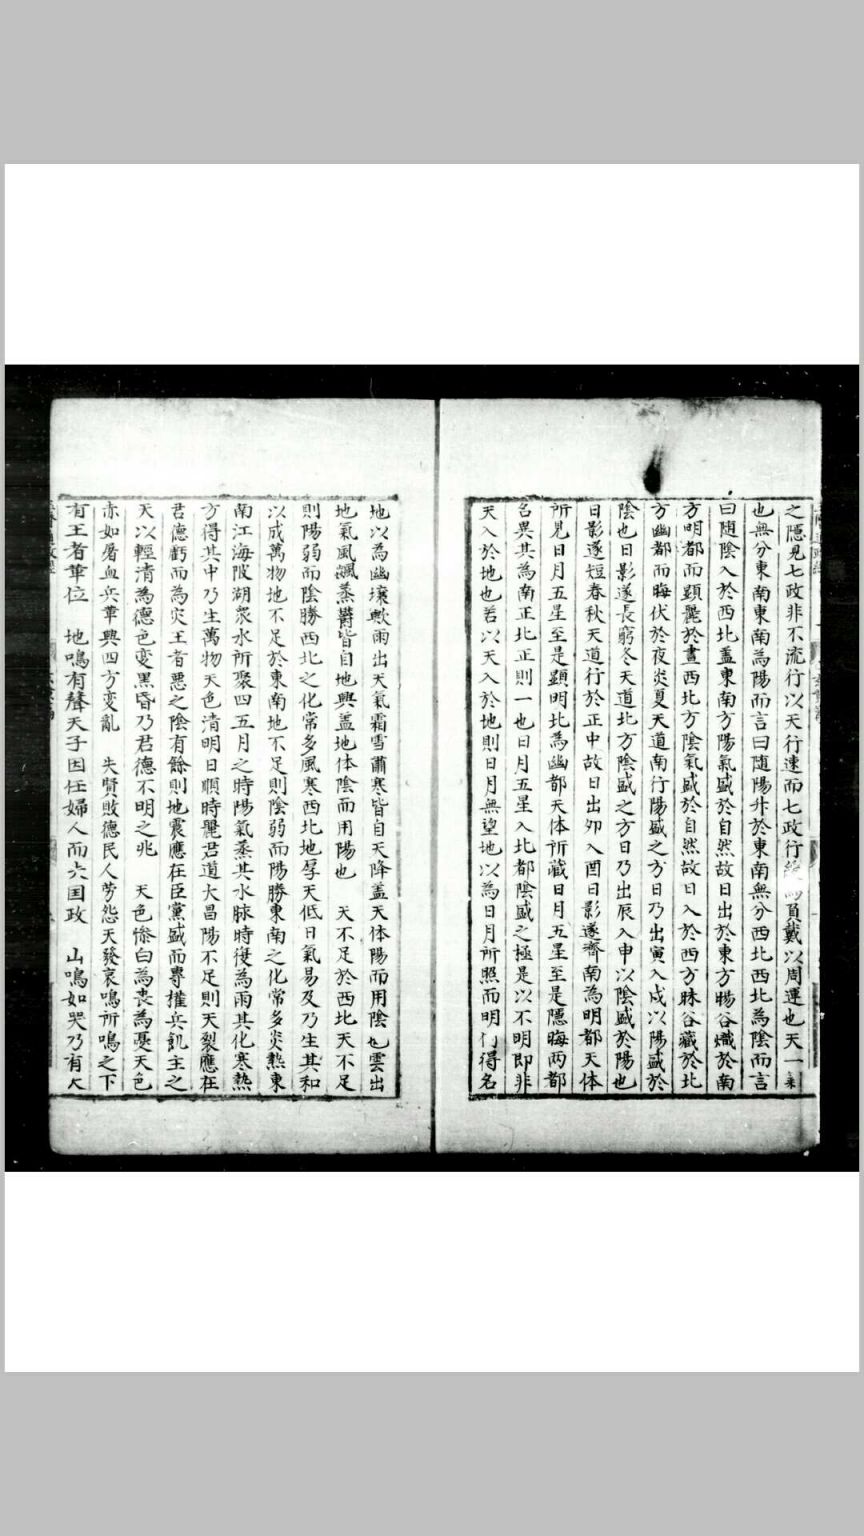 之隱見七政非不流行以天行速而七政行緩為負戴以周運也天一氣
也無分東南東南為陽而言曰随陽升於東南無分西北西北為陰而言
曰随陰入於西北盖東南方陽氣盛於自然故日出於東方暘谷熾於南
方明都而顕麗於晝西北方陰氣盛於自然故日入於西方昧谷藏於北
方幽都而晦伏於夜炎夏天道南行陽盛之方日乃出寅入戍以陽盛於
陰也日影遂長窮冬天道北方陰盛之方日乃出辰入申以陰盛於陽也
日影遂短春秋天道行於正中故日出夘入酉日影遂齊南為明都天体
所見日月五星至是顕明北為幽都天体所藏日月五星至是隱晦两都
名異其為南正北正則一也日月五星入北都陰盛之極是以不明即非
天入於地也若以天入於地則日月無望地以為日月所照而明何得名
地以為幽壤歟雨出天氣霜雪肅寒皆自天降盖天体陽而用陰也雲出
地氣風飆蒸欝皆自地興盖地体陰而用陽也　天不足於西北天不足
則陽弱而陰勝西北之化常多風寒西北地厚天低日氣易及乃生其和
以成萬物地不足於東南地不足則陰弱而陽勝東南之化常多炎熱東
南江海陂湖衆水所聚四五月之時陽氣蒸其水脉時復為雨其化寒熱
方得其中乃生萬物天色清明日順時麗君道大昌陽不足則天裂應在
君德虧而為灾王者悪之陰有餘則地震應在臣黨盛而專權兵飢主之
天以輕清為德色变黒昏乃君德不明之兆　天色惨白為喪為憂天色
赤如屠血兵革興四方变亂　失賢敗德民人労怨天發哀鳴所鳴之下
有王者革位　地鳴有聲天子因任婦人而亡国政　山鳴如哭乃有大